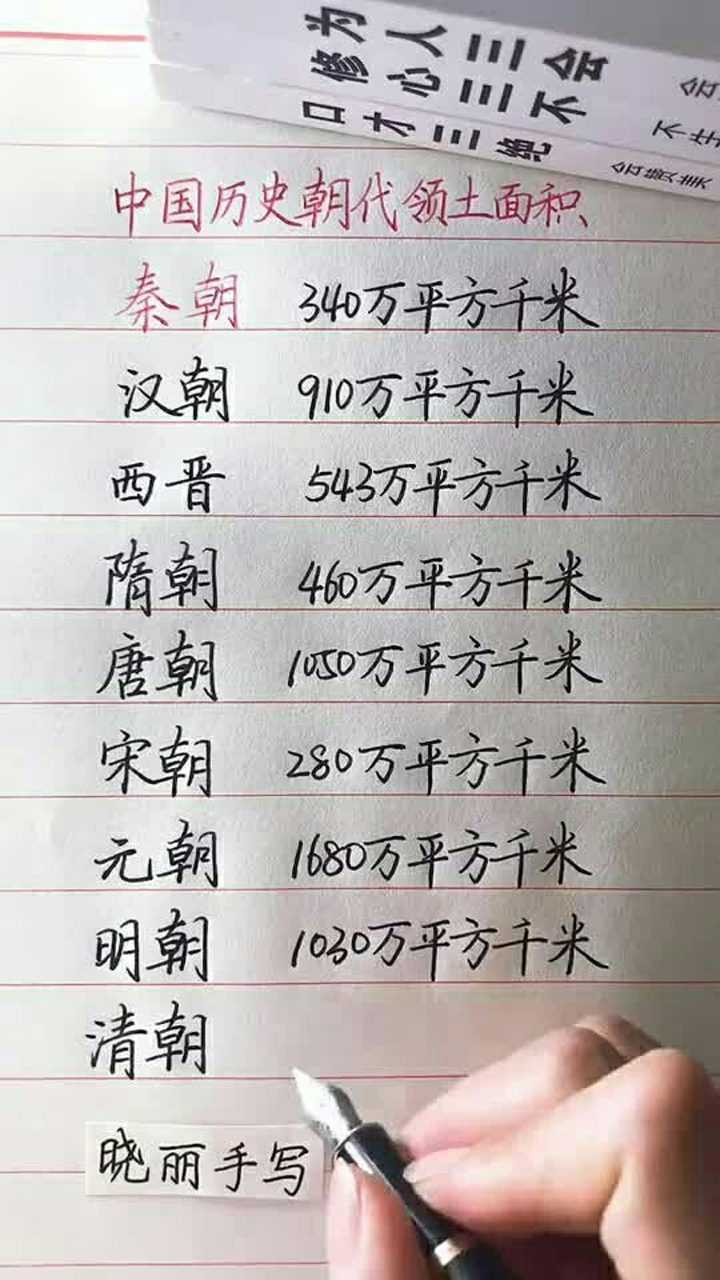 为人三会
修心三不
口才三绝
中国历史朝代领土面积
秦朝 340万平方千米
汉朝 910万平方千米
西晋 543万平方千米
隋朝 460万平方千米
唐朝 1050万平方千米
宋朝 280万平方千米
元朝 1680万平方千米
明朝 1030万平方千米
清朝
晓丽手写